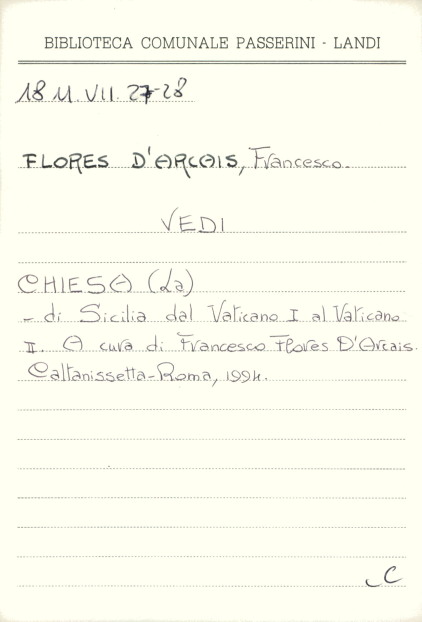 BIBLIOTECA COMUNALE PASSERINI - LANDI
18 M. VII. 27-28
FLORES D'ARCAIS, Francesco.
VEDI
CHIESA (La)
- di Sicilia dal Vaticano I al Vaticano
II. A cura di Francesco Flores D'Arcais.
Caltanissetta-Roma, 1994.
C